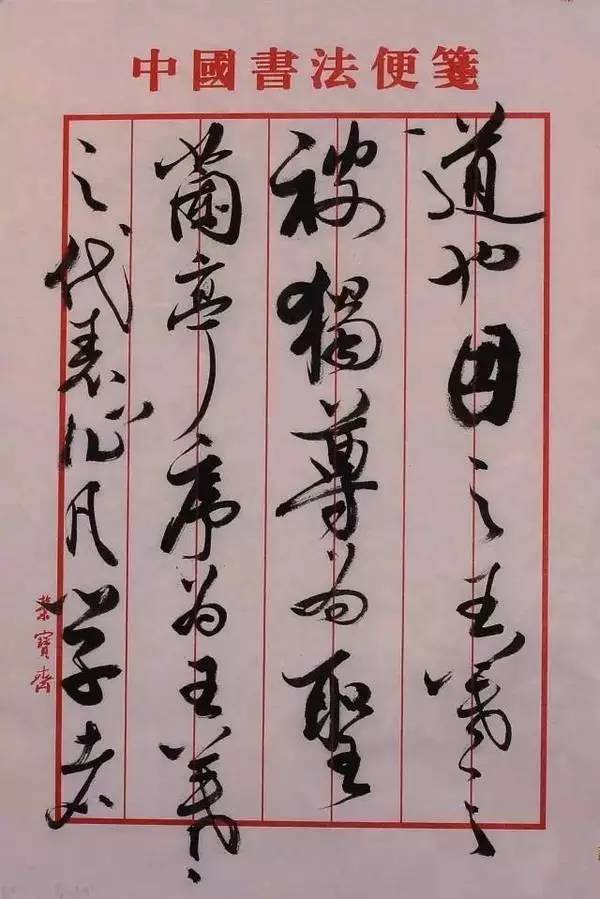 中國書法便箋
道也因之王羲之
被獨尊为聖
蘭亭序为王羲
之代表作凡学者
榮寶齋